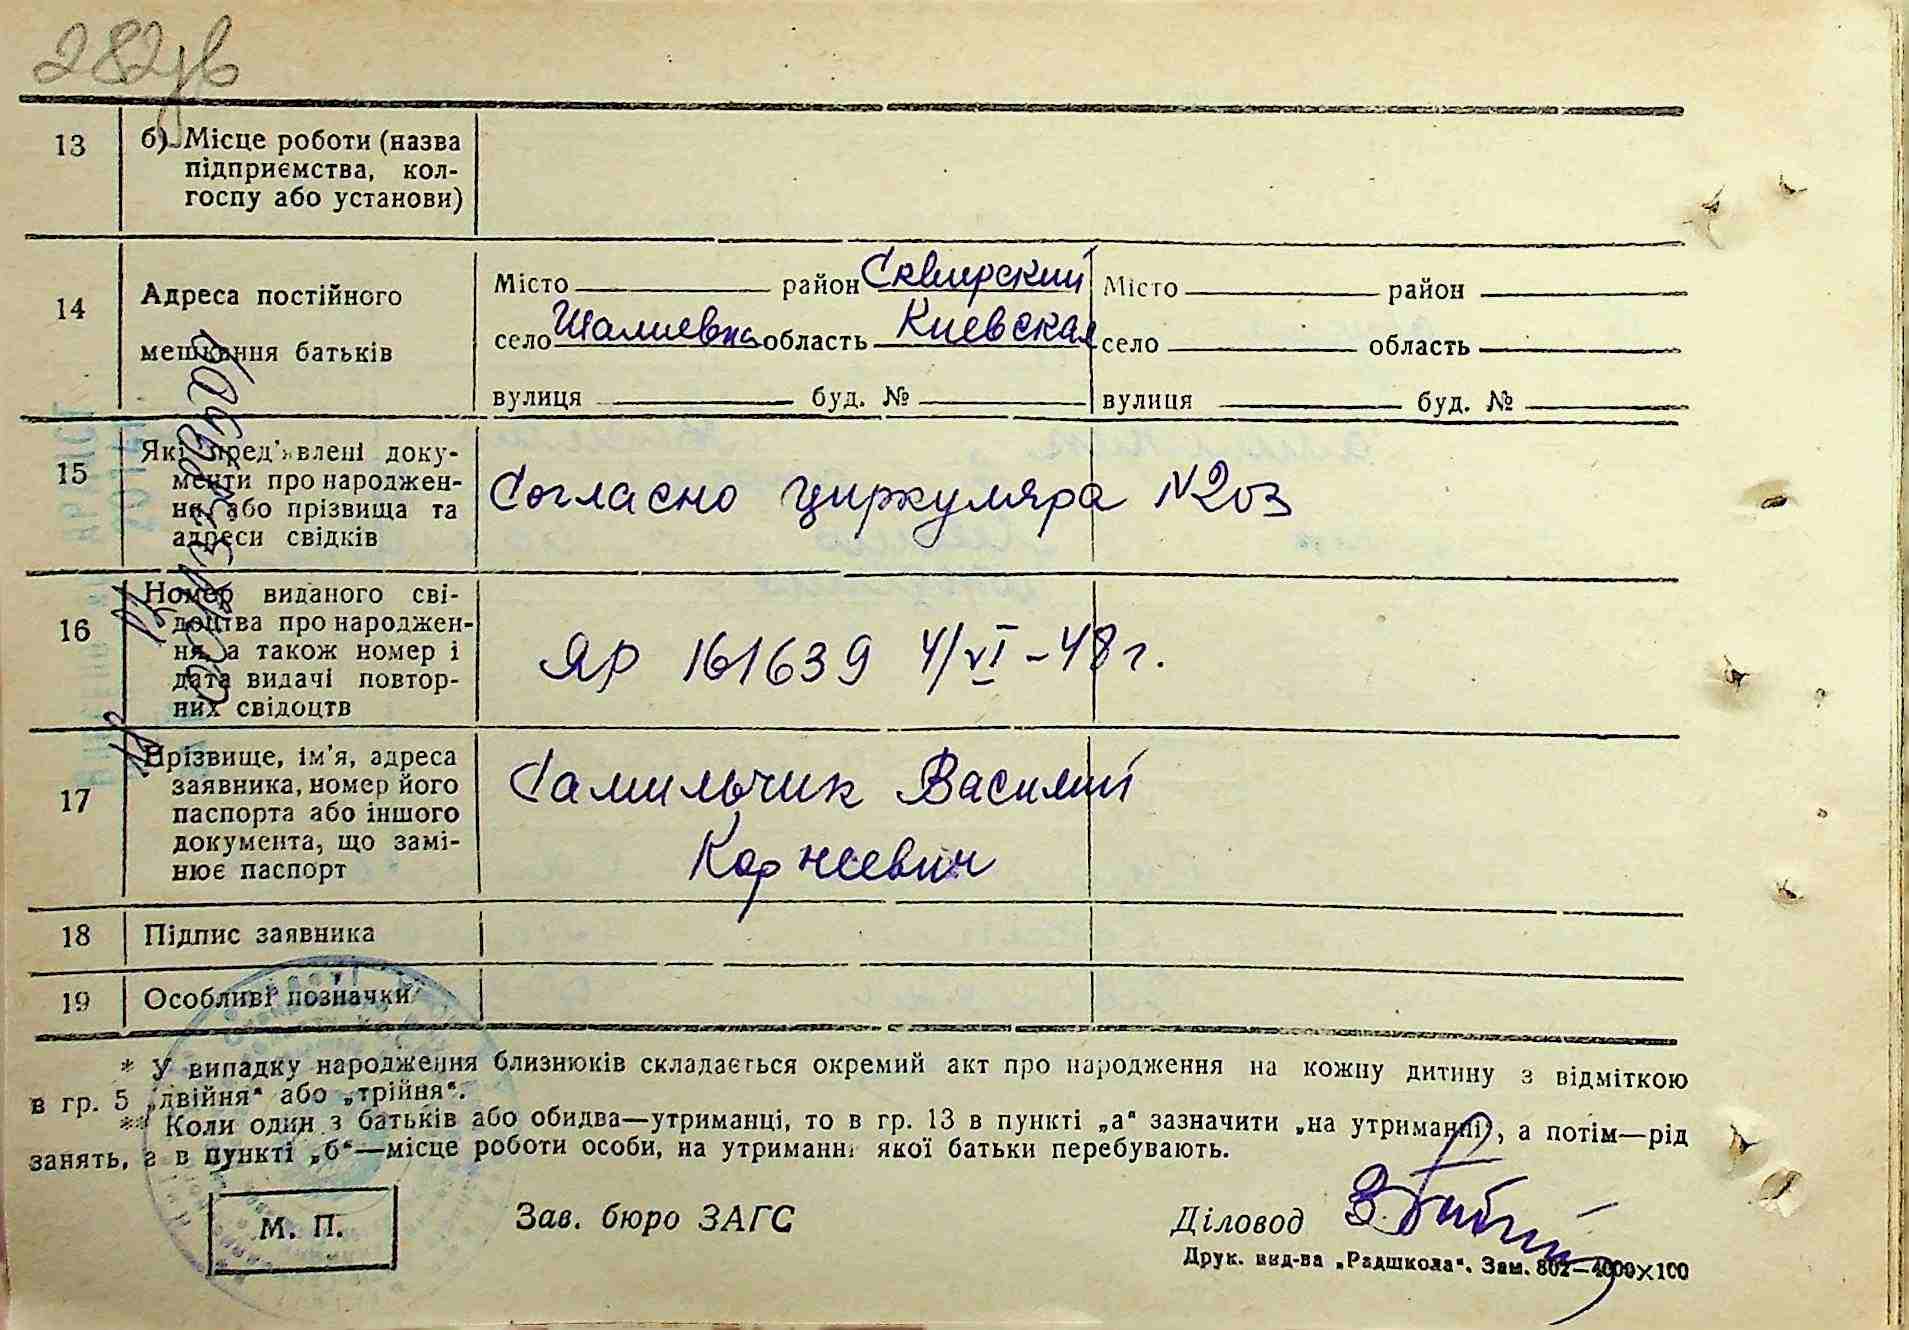 282зв
13 б) Місце роботи (назва
підприємства, кол-
госпу або установи)
14 Адреса постійного
мешкання батьків
Місто район Сквирский Місто район
село Шалиевка область Киевская село область
вулиця буд. № вулиця буд. №
15 Які пред'явлені доку-
менти про народжен-
ня, або прізвища та
адреси свідків
Согласно циркуляра №203
16 Номер виданого сві-
доцтва про народжен-
ня, а також номер і
дата видачі повтор-
них свідоцтв
ЯР 161639 4/VI-48г.
17 Прізвище, ім'я, адреса
заявника, номер його
паспорта або іншого
документа, що замі-
нює паспорт
Самильчик Василий
Корнеевич
18 Підпис заявника
19 Особливі позначки
* У випадку народження близнюків складається окремий акт про народження на кожну дитину з відміткою
в гр. 5 „двійня“ або „трійня“.
** Коли один з батьків або обидва—утриманці, то в гр. 13 в пункті „а“ зазначити „на утриманні), а потім—рід
занять, а в пункті „б“—місце роботи особи, на утриманні якої батьки перебувають.
М. П. Зав. бюро ЗАГС Діловод
Друк. вид-ва „Радшкола“. Зам. 802—4000×100